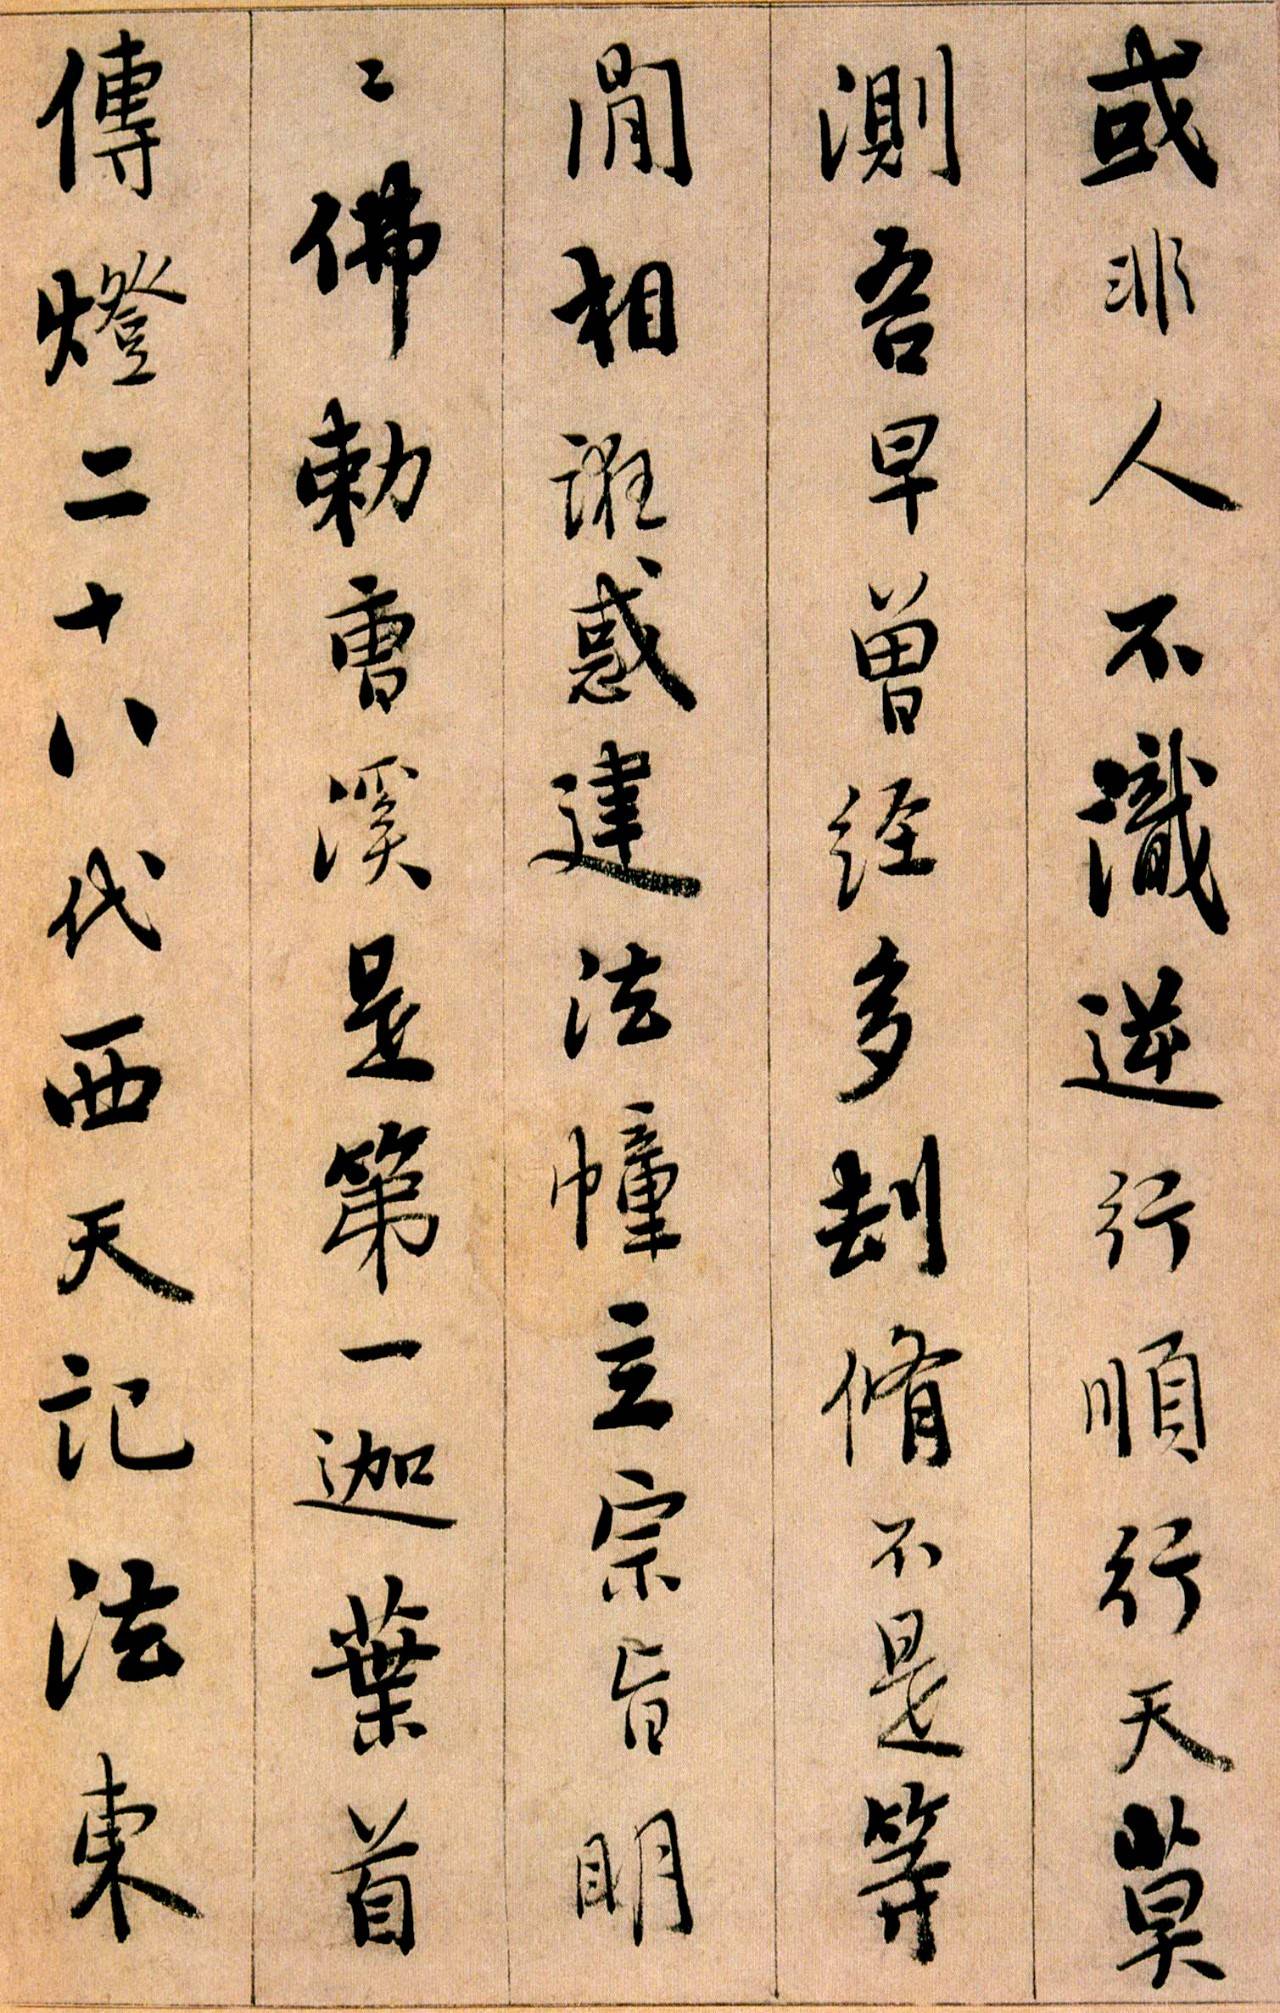 或非人不識逆行順行天莫
測吾早曾経多劫修不是等
閒相誑惑建法幢立宗旨明
〻佛勅曹溪是第一迦葉首
傳燈二十八代西天記法東